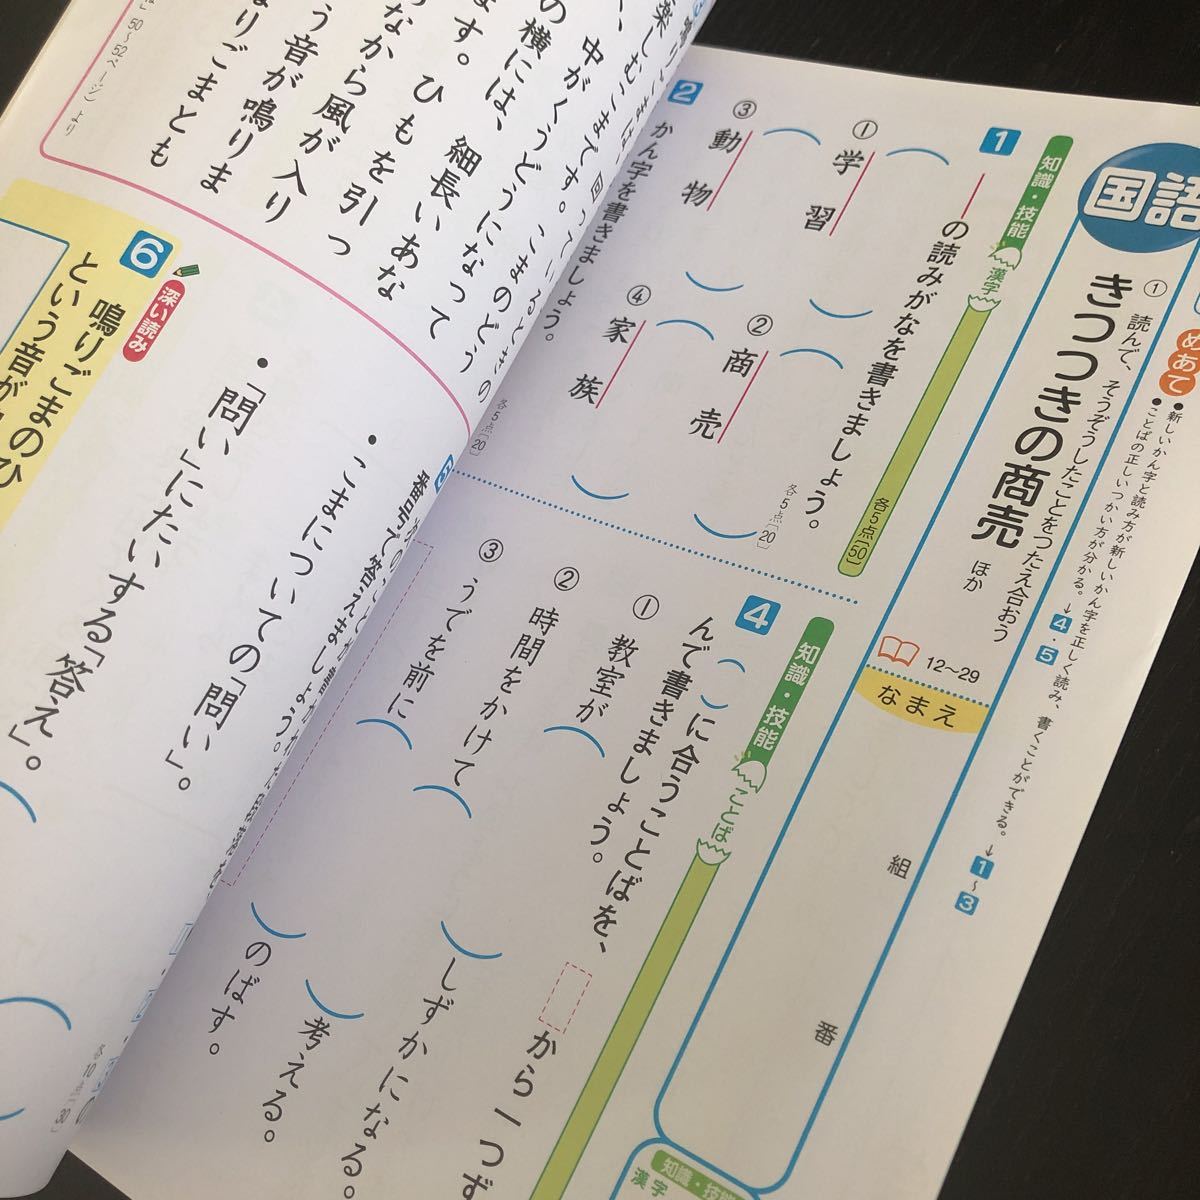 国語
① 読んで、そうぞうしたことをつたえ合おう
きつつきの商売 ほか
12～29
めあて
●新しいかん字と読み方が新しいかん字を正しく読み、書くことができる。→1～3
●ことばの正しいつかい方が分かる。→4・5
なまえ
組
番
知識・技能 漢字 各5点〔50〕
1 ──の読みがなを書きましょう。 各5点〔20〕
① 学習
② 商売
③ 動物
④ 家族
2
かん字を書きましょう。 各5点〔20〕
知識・技能 ことば
4 （ ）に合うことばを、
から一つず
んで書きましょう。
① 教室が（ ）しずかになる。
② 時間をかけて（ ）考える。
③ うでを前に（ ）のばす。
知識・技能
漢字
楽しむこまです。
、中がくうどうになって
の横には、細長いあな
ます。ひもを引っ
なから風が入り
う音が鳴りま
なりごまとも
50～52ページ）より
5
番号で答えましょう。
・こまについての「問い」。
・「問い」にたいする「答え」。
各10点〔30〕
6 深い読み
鳴りごまのひ
という音が